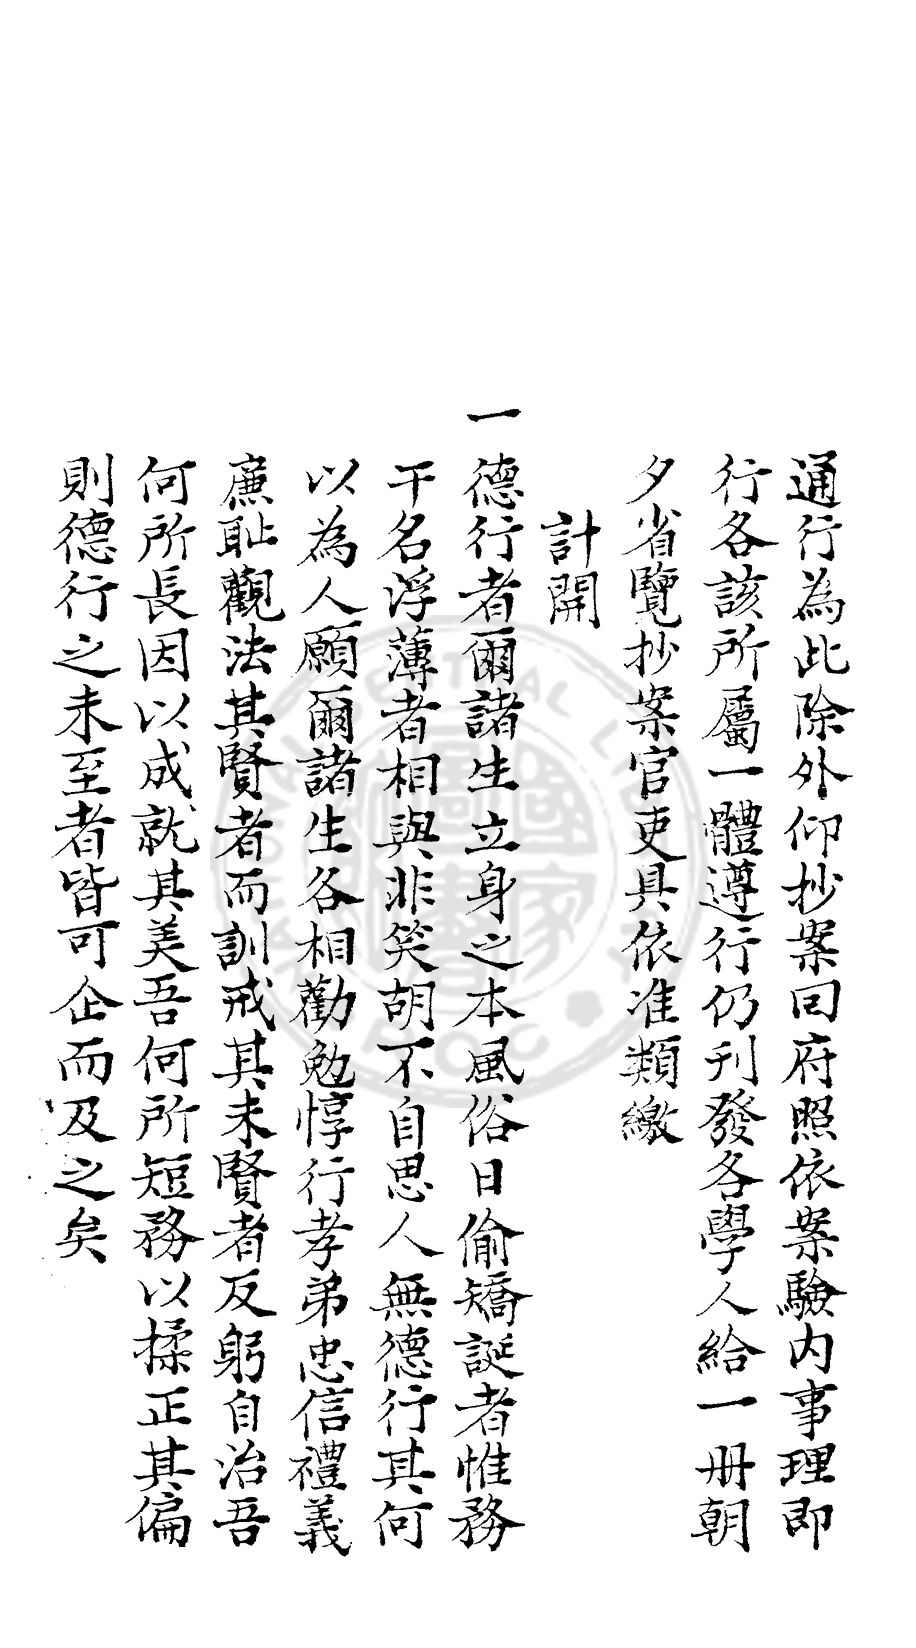 通行為此除外仰抄案囘府照依案驗内事理即
行各該所屬一體遵行仍刊發各學人給一冊朝
夕省覽抄案官吏具依准類繳
計開
一德行者爾諸生立身之本風俗日偷矯誕者惟務
干名浮薄者相與非笑胡不自思人無德行其何
以為人願爾諸生各相勸勉惇行孝弟忠信禮義
廉耻觀法其賢者而訓戒其未賢者反躬自治吾
何所長因以成就其美吾何所短務以揉正其偏
則德行之未至者皆可企而及之矣